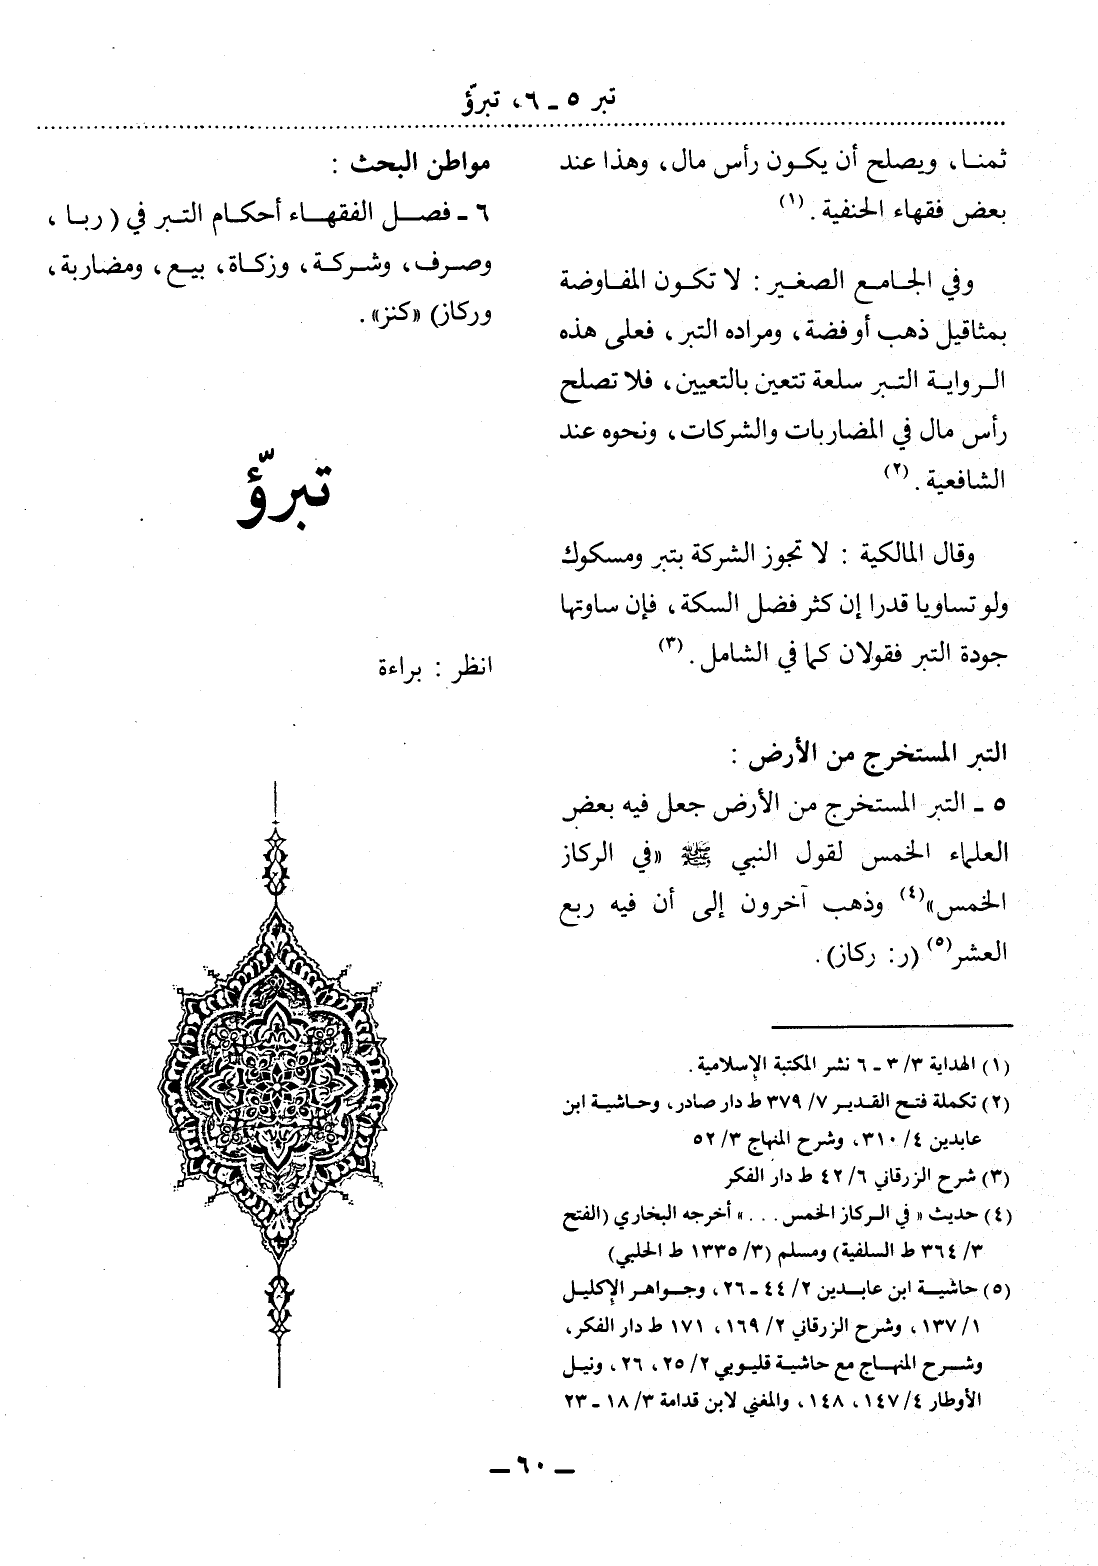 تبر ٥ ـ ٦، تبرّؤ
ثمنـا، ويصلح أن يكـون رأس مال، وهذا عند
بعض فقهاء الحنفية. (١)
وفي الجـامـع الصغـير : لا تكـون المفـاوضة
بمثاقيل ذهب أو فضة، ومراده التبر، فعلى هذه
الـروايـة التـبر سلعة تتعين بالتعيين، فلا تصلح
رأس مال في المضاربات والشركات، ونحوه عند
الشافعية. (٢)
وقال المالكية : لا تجوز الشركة بتبر ومسكوك
ولو تساويا قدرا إن كثر فضل السكة، فإن ساوتها
جودة التبر فقولان كما في الشامل. (٣)
التبر المستخرج من الأرض :
٥ ـ التبر المستخرج من الأرض جعل فيه بعض
العلماء الخمس لقول النبي ﷺ «في الركاز
الخمس»(٤) وذهب آخرون إلى أن فيه ربع
العشر(٥) (ر: ركاز).
(١) الهداية ٣/ ٣ ـ ٦ نشر المكتبة الإسلامية.
(٢) تكملة فتح القدير ٧/ ٣٧٩ ط دار صادر، وحاشية ابن
عابدين ٤/ ٣١٠، وشرح المنهاج ٣/ ٥٢
(٣) شرح الزرقاني ٦/ ٤٢ ط دار الفكر
(٤) حديث « في الـركاز الخمس . . . » أخرجه البخاري (الفتح
٣/ ٣٦٤ ط السلفية) ومسلم (٣/ ١٣٣٥ ط الحلبي)
(٥) حاشيـة ابن عابـدين ٢/ ٤٤ ـ ٢٦، وجـواهـر الإكليـل
١/ ١٣٧، وشرح الزرقاني ٢/ ١٦٩، ١٧١ ط دار الفكر،
وشـرح المنهـاج مع حاشية قليوبي ٢/ ٢٥، ٢٦، ونيـل
الأوطار ٤/ ١٤٧، ١٤٨، والمغني لابن قدامة ٣/ ١٨ ـ ٢٣
مواطن البحث :
٦ ـ فصـل الفقهـاء أحكـام التـبر في ( ربـا ،
وصـرف، وشـركـة، وزكـاة، بيـع، ومضـاربة،
وركاز) «كنز».
تبرّؤ
انظر : براءة
ـ ٦٠ ـ